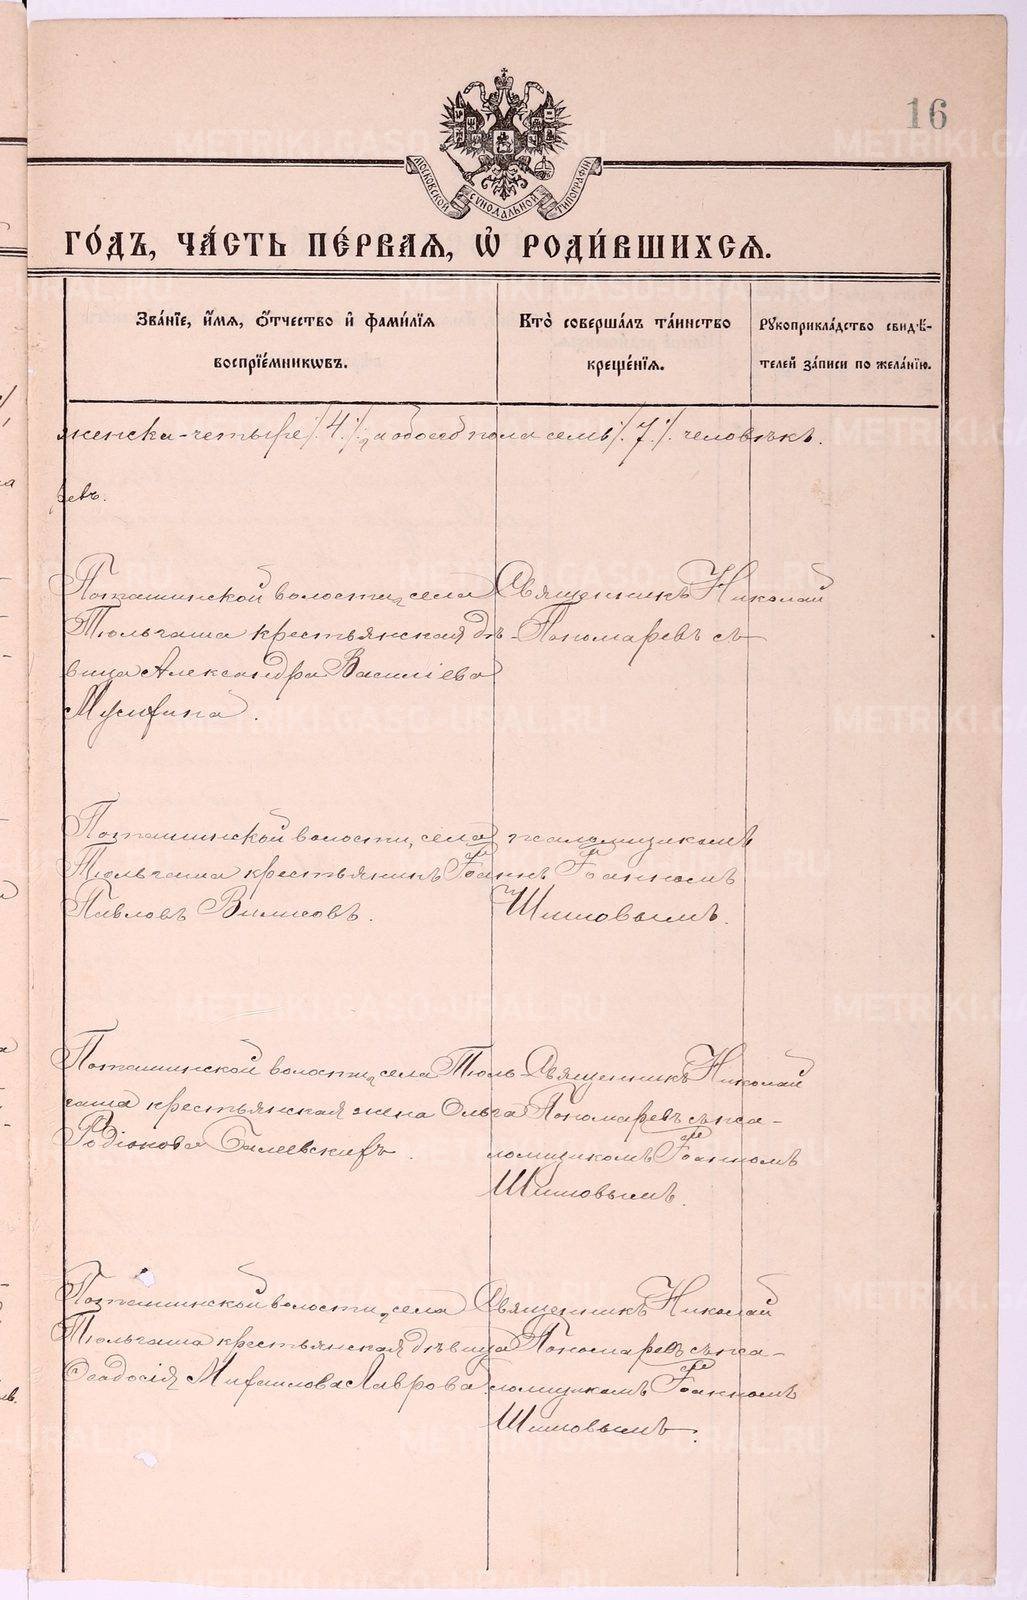 16
МОСКОВСКОЙ СѴНОДАЛЬНОЙ ТИПОГРАФІИ
ГО́ДЪ, ЧА́СТЬ ПЕ́РВАЯ, Ѽ РОДИ́ВШИХСЯ.
Зва́нїе, и҆́мя, ѻ҆́тчество и҆ фами́лїя
воспрїе́мникωвъ.
Кто̀ соверша́лъ та́инство
креще́нїя.
Рꙋкоприкла́дство свидѣ́-
телей за́писи по жела́нїю.
женска - четыре /.4./, а обоего пола семь /.7./. человѣкъ.
Поташинской волости, села
Тюльгаша крестьянская дѣ-
вица Александра Василіева
Священникъ Николай
Пономаревъ съ
Поташинской волости, села
Тюльгаша крестьянинъ Іоаннъ
Павловъ Вилисовъ.
псаломщикомъ
Іоанномъ
Шишовымъ.
Поташинской волости, села Тюль-
гаша крестьянская жена Ольга
Родіонова
Священникъ Николай
Пономаревъ съ пса-
ломщикомъ Іоанномъ
Шишовымъ.
Поташинской волости, села
Тюльгаша крестьянская дѣвица
Ѳеодосія Михаилова Лаврова.
Священникъ Николай
Пономаревъ съ пса-
ломщикомъ Іоанномъ
Шишовымъ.
METRIKI.GASO-URAL.RU